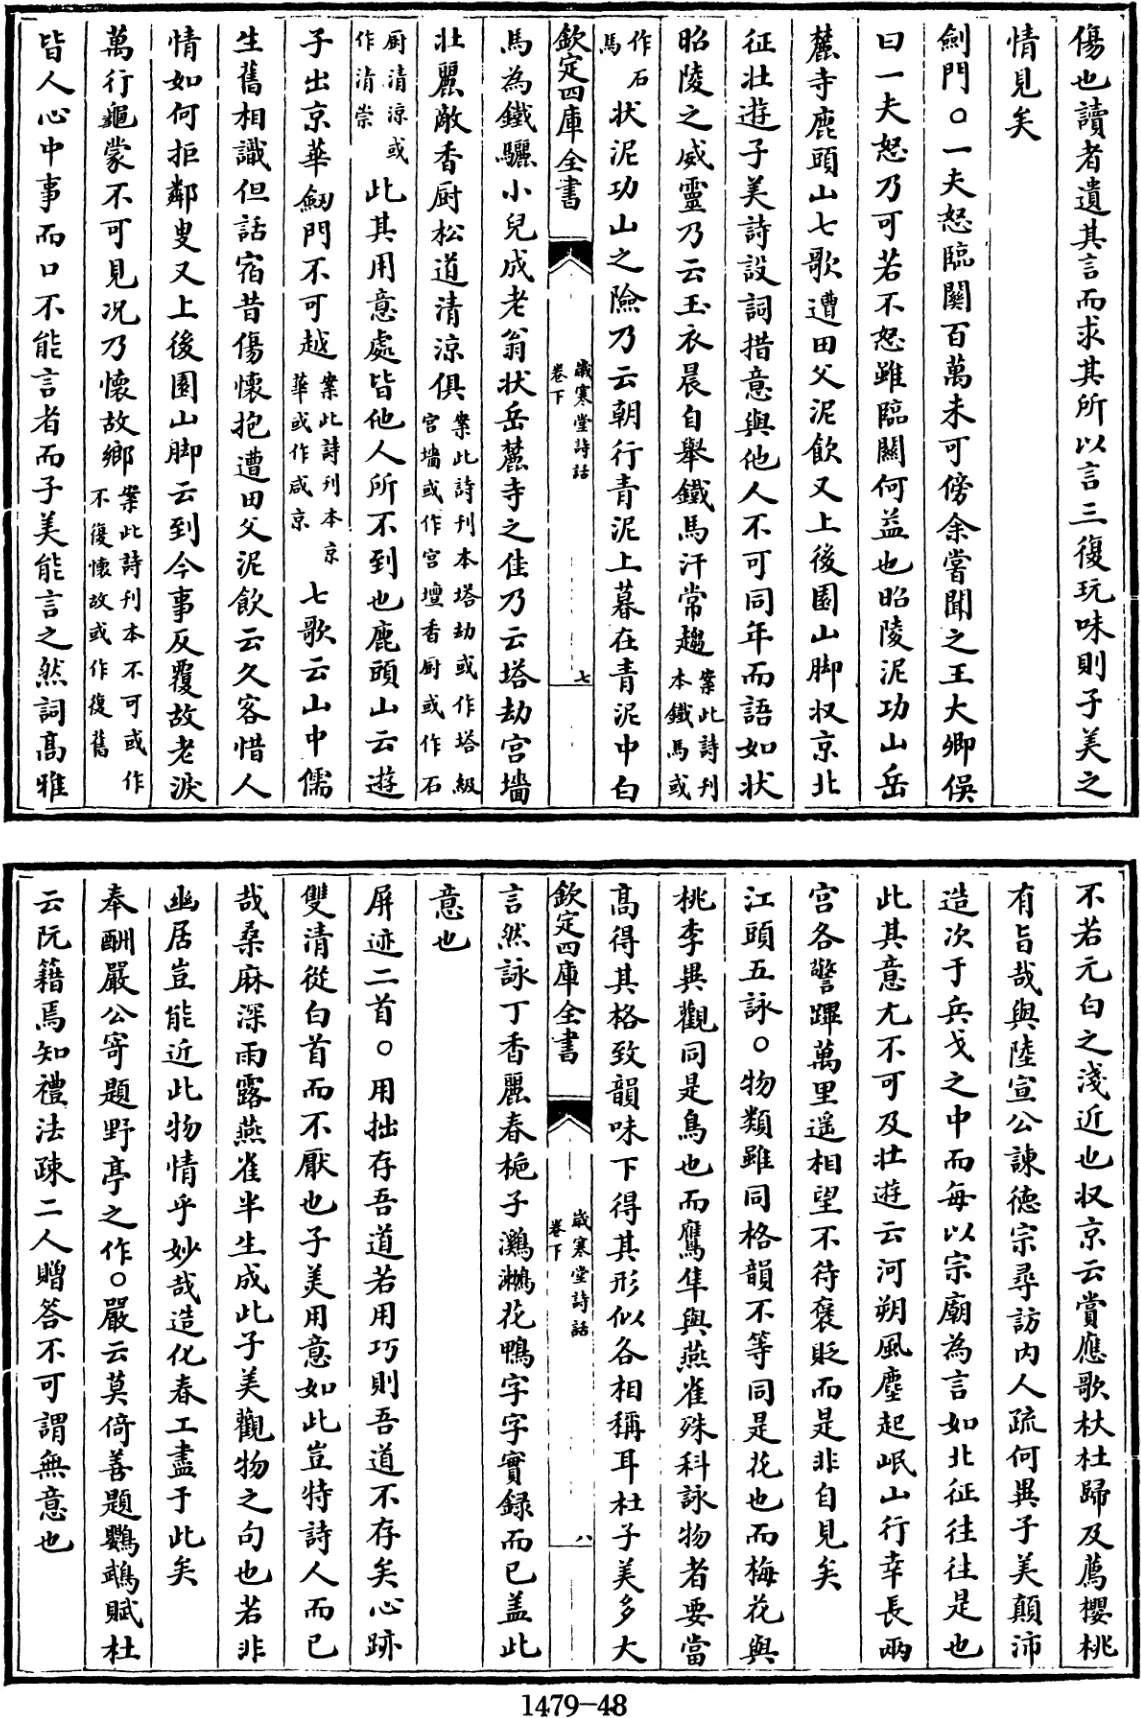 傷也讀者遺其言而求其所以言三復玩味則子美之
情見矣
劍門○一夫怒臨關百萬未可傍余嘗聞之王大卿俁
曰一夫怒乃可若不怒雖臨關何益也昭陵泥功山岳
麓寺鹿頭山七歌遭田父泥飲又上後園山脚収京北
征壯遊子美詩設詞措意與他人不可同年而語如狀
昭陵之威靈乃云玉衣晨自舉鐵馬汗常趨案此詩刊
本鐵馬或
作石
馬狀泥功山之險乃云朝行青泥上暮在青泥中白
欽定四庫全書
歲寒堂詩話
卷下
七
馬為鐵驪小兒成老翁狀岳麓寺之佳乃云塔劫宫墻
壯麗敵香厨松道清凉俱案此詩刊本塔劫或作塔級
宫墻或作宫壇香厨或作石
厨清凉或
作清崇此其用意處皆他人所不到也鹿頭山云遊
子出京華劒門不可越案此詩刊本京
華或作咸京七歌云山中儒
生舊相識但話宿昔傷懷抱遭田父泥飲云久客惜人
情如何拒鄰叟又上後園山脚云到今事反覆故老淚
萬行龜蒙不可見况乃懷故鄉案此詩刊本不可或作
不復懷故或作復舊
皆人心中事而口不能言者而子美能言之然詞高雅
不若元白之淺近也収京云賞應歌杕杜歸及薦櫻桃
有旨哉與陸宣公諫德宗尋訪内人疏何異子美顛沛
造次于兵戈之中而每以宗廟為言如北征往往是也
此其意尤不可及壯遊云河朔風塵起岷山行幸長兩
宫各警蹕萬里遥相望不待褒貶而是非自見矣
江頭五詠○物類雖同格韻不等同是花也而梅花與
桃李異觀同是鳥也而鷹隼與燕雀殊科詠物者要當
高得其格致韻味下得其形似各相稱耳杜子美多大
欽定四庫全書
歲寒堂詩話
卷下
八
言然詠丁香麗春梔子鸂鷘花鴨字字實録而已盖此
意也
屏迹二首○用拙存吾道若用巧則吾道不存矣心跡
雙清從白首而不厭也子美用意如此豈特詩人而已
哉桑麻深雨露燕雀半生成此子美觀物之句也若非
幽居豈能近此物情乎妙哉造化春工盡于此矣
奉酬嚴公寄題野亭之作○嚴云莫倚善題鸚鵡賦杜
云阮籍焉知禮法疎二人贈答不可謂無意也
1479-48